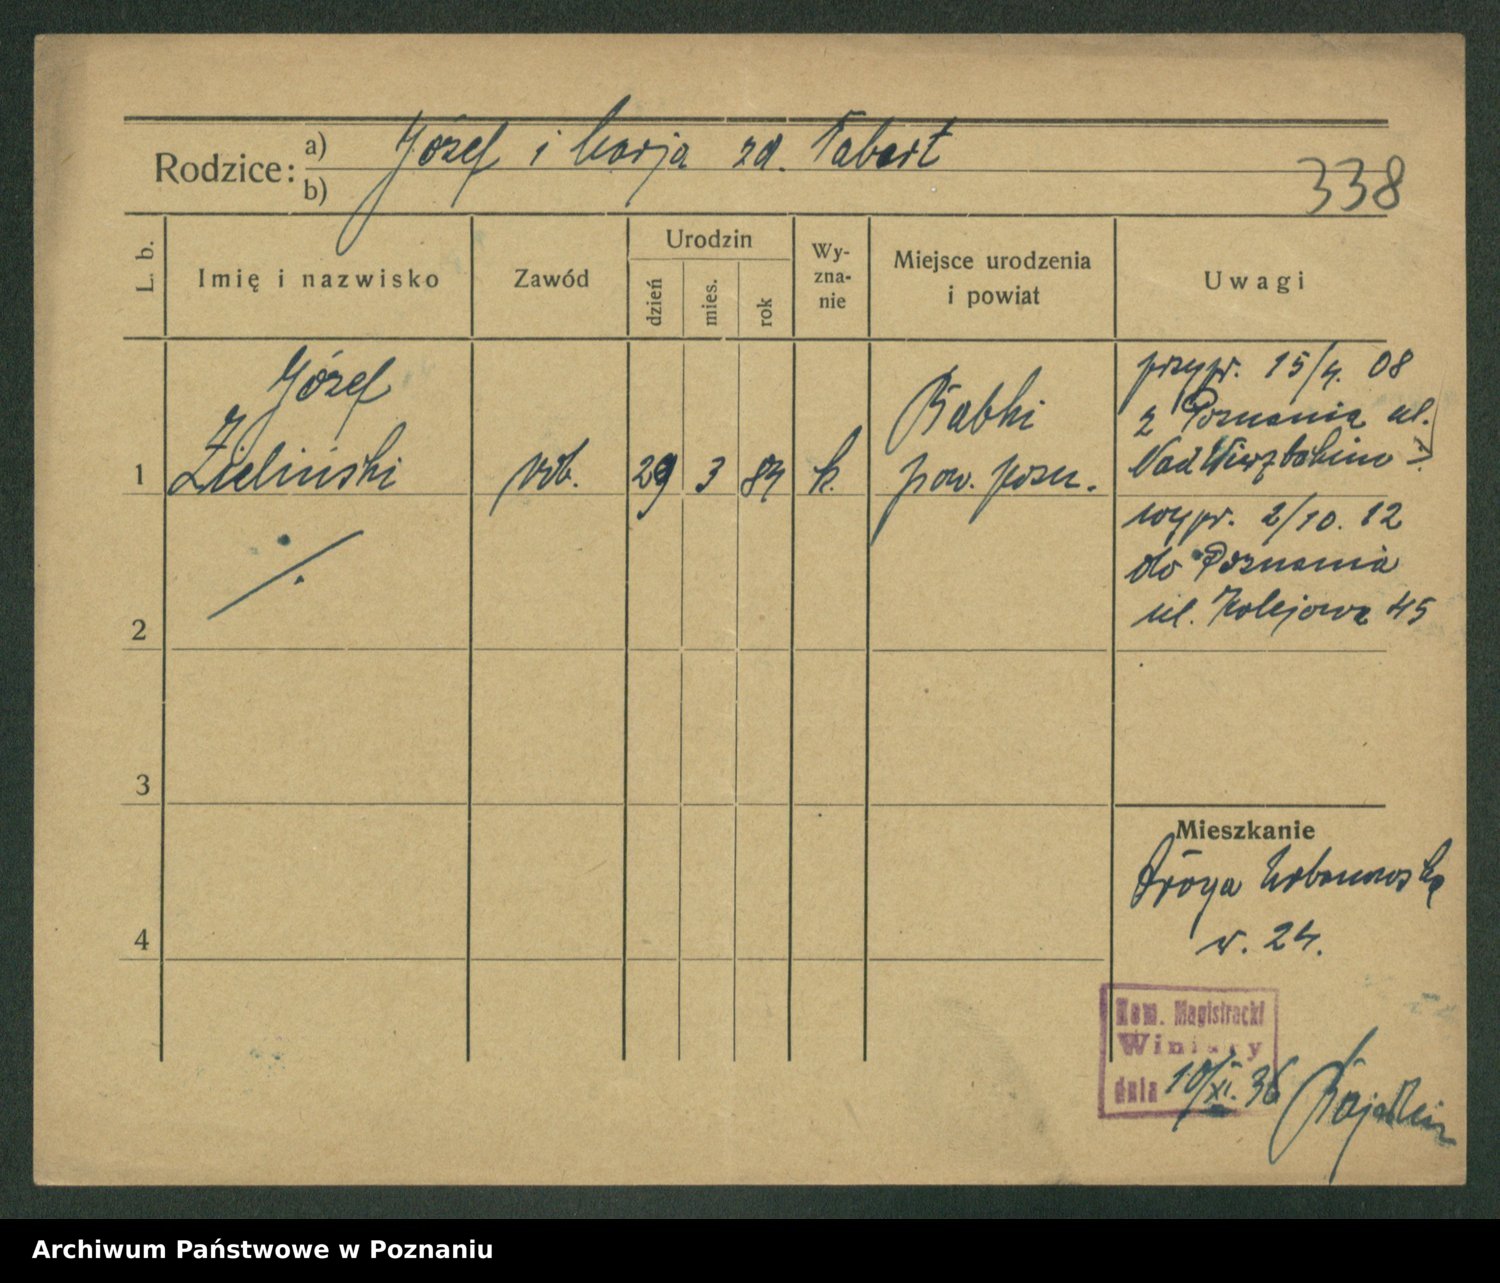 Rodzice: a) Józef i Marja zd. Tabert
b)
338
L. b.
Imię i nazwisko
Zawód
Urodzin
dzień
mies.
rok
Wy-
zna-
nie
Miejsce urodzenia
i powiat
Uwagi
Józef
1 Zieliński
rob.
29 3 84
k.
Babki
pow. pozn.
przypr. 15/4. 08
z Poznania ul.
Nad Wierzbakiem
wypr. 2/10. 12
do Poznania
ul. Kolejowa 45
2
3
4
Mieszkanie
Dróga Urbanowska
nr. 24.
Kom. Magistracki
Winiary
dnia 10/XI. 36
Archiwum Państwowe w Poznaniu